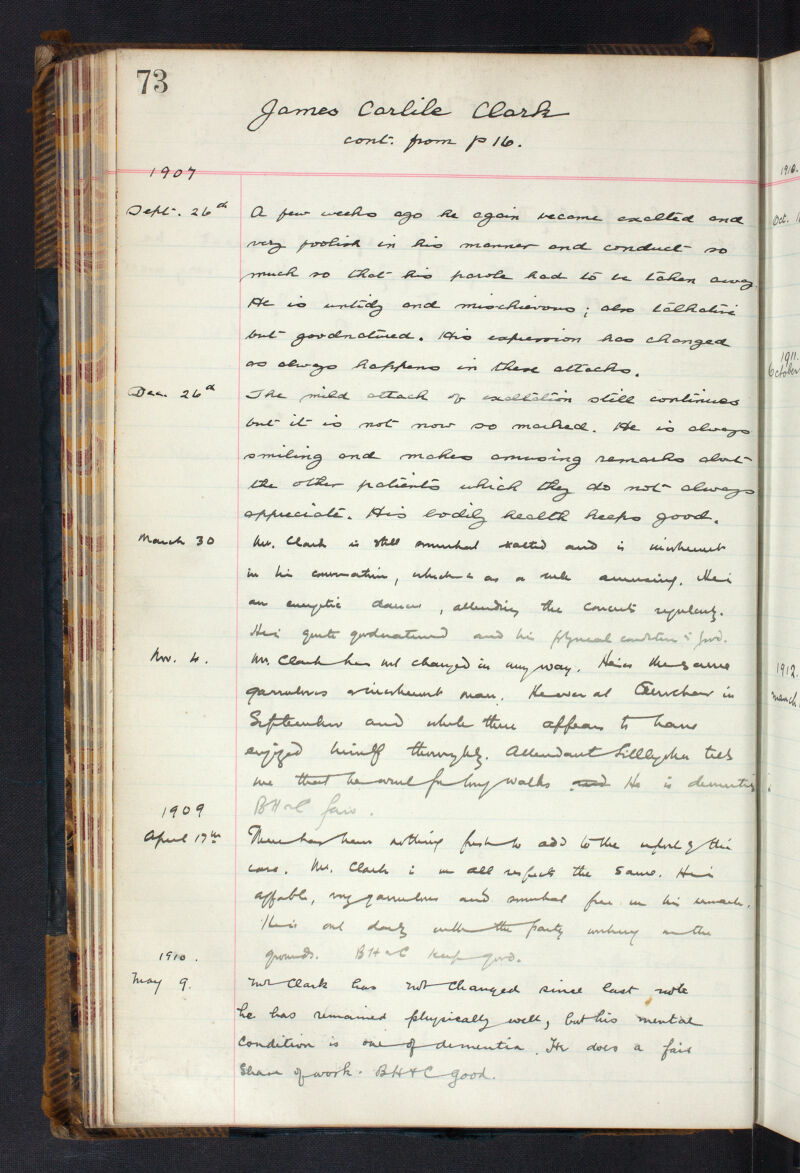 73
James Carlile Clark
cont. from p 16.
1907
Sept. 26th A few weeks ago he again became exalted and
very foolish in his manner and conduct so
much so that his parole had to be taken away
He is untidy and mischievous; also talkative
but goodnatured. His expression has changed
as always happens in these attacks.
Dec. 26th The mild attack of exaltation still continues
but it is not now so marked. He is always
smiling and makes amusing remarks about
the other patients which they do not always
appreciate. His bodily health keeps good.
March 30 Mr. Clark is still somewhat exalted and is incoherent
in his conversation, which is as a rule amusing. He is
an energetic dancer, attending the concerts regularly.
He is quite goodnatured and his physical condition is good.
Nov. 4. Mr. Clark has not changed in any way. He is the same
garrulous & incoherent man. He was at in
September and while there appears to have
enjoyed himself thoroughly. Attendant tells
me that he went for long walks and He is demented
BH & C fair.
1909
April 17th There has been nothing fresh to add to the report of this
case. Mr. Clark is in all respects the same. He is
affable, very garrulous and somewhat free in his remarks.
He is out daily with the party working in the
grounds. BH & C keep good.
1910.
May 9. Mr Clark has not changed since last note
he has remained physically well, but his mental
condition is one of dementia. He does a fair
share of work. BH & C good.
1910.
Oct. 1
1911.
October
1912.
March